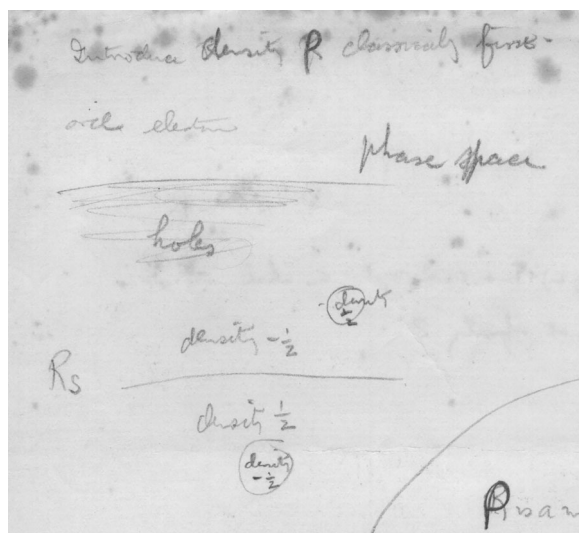 Introduce density ρ classically first
electron
phase space
holes
density
½
density -½
Rs
density ½
density
-½